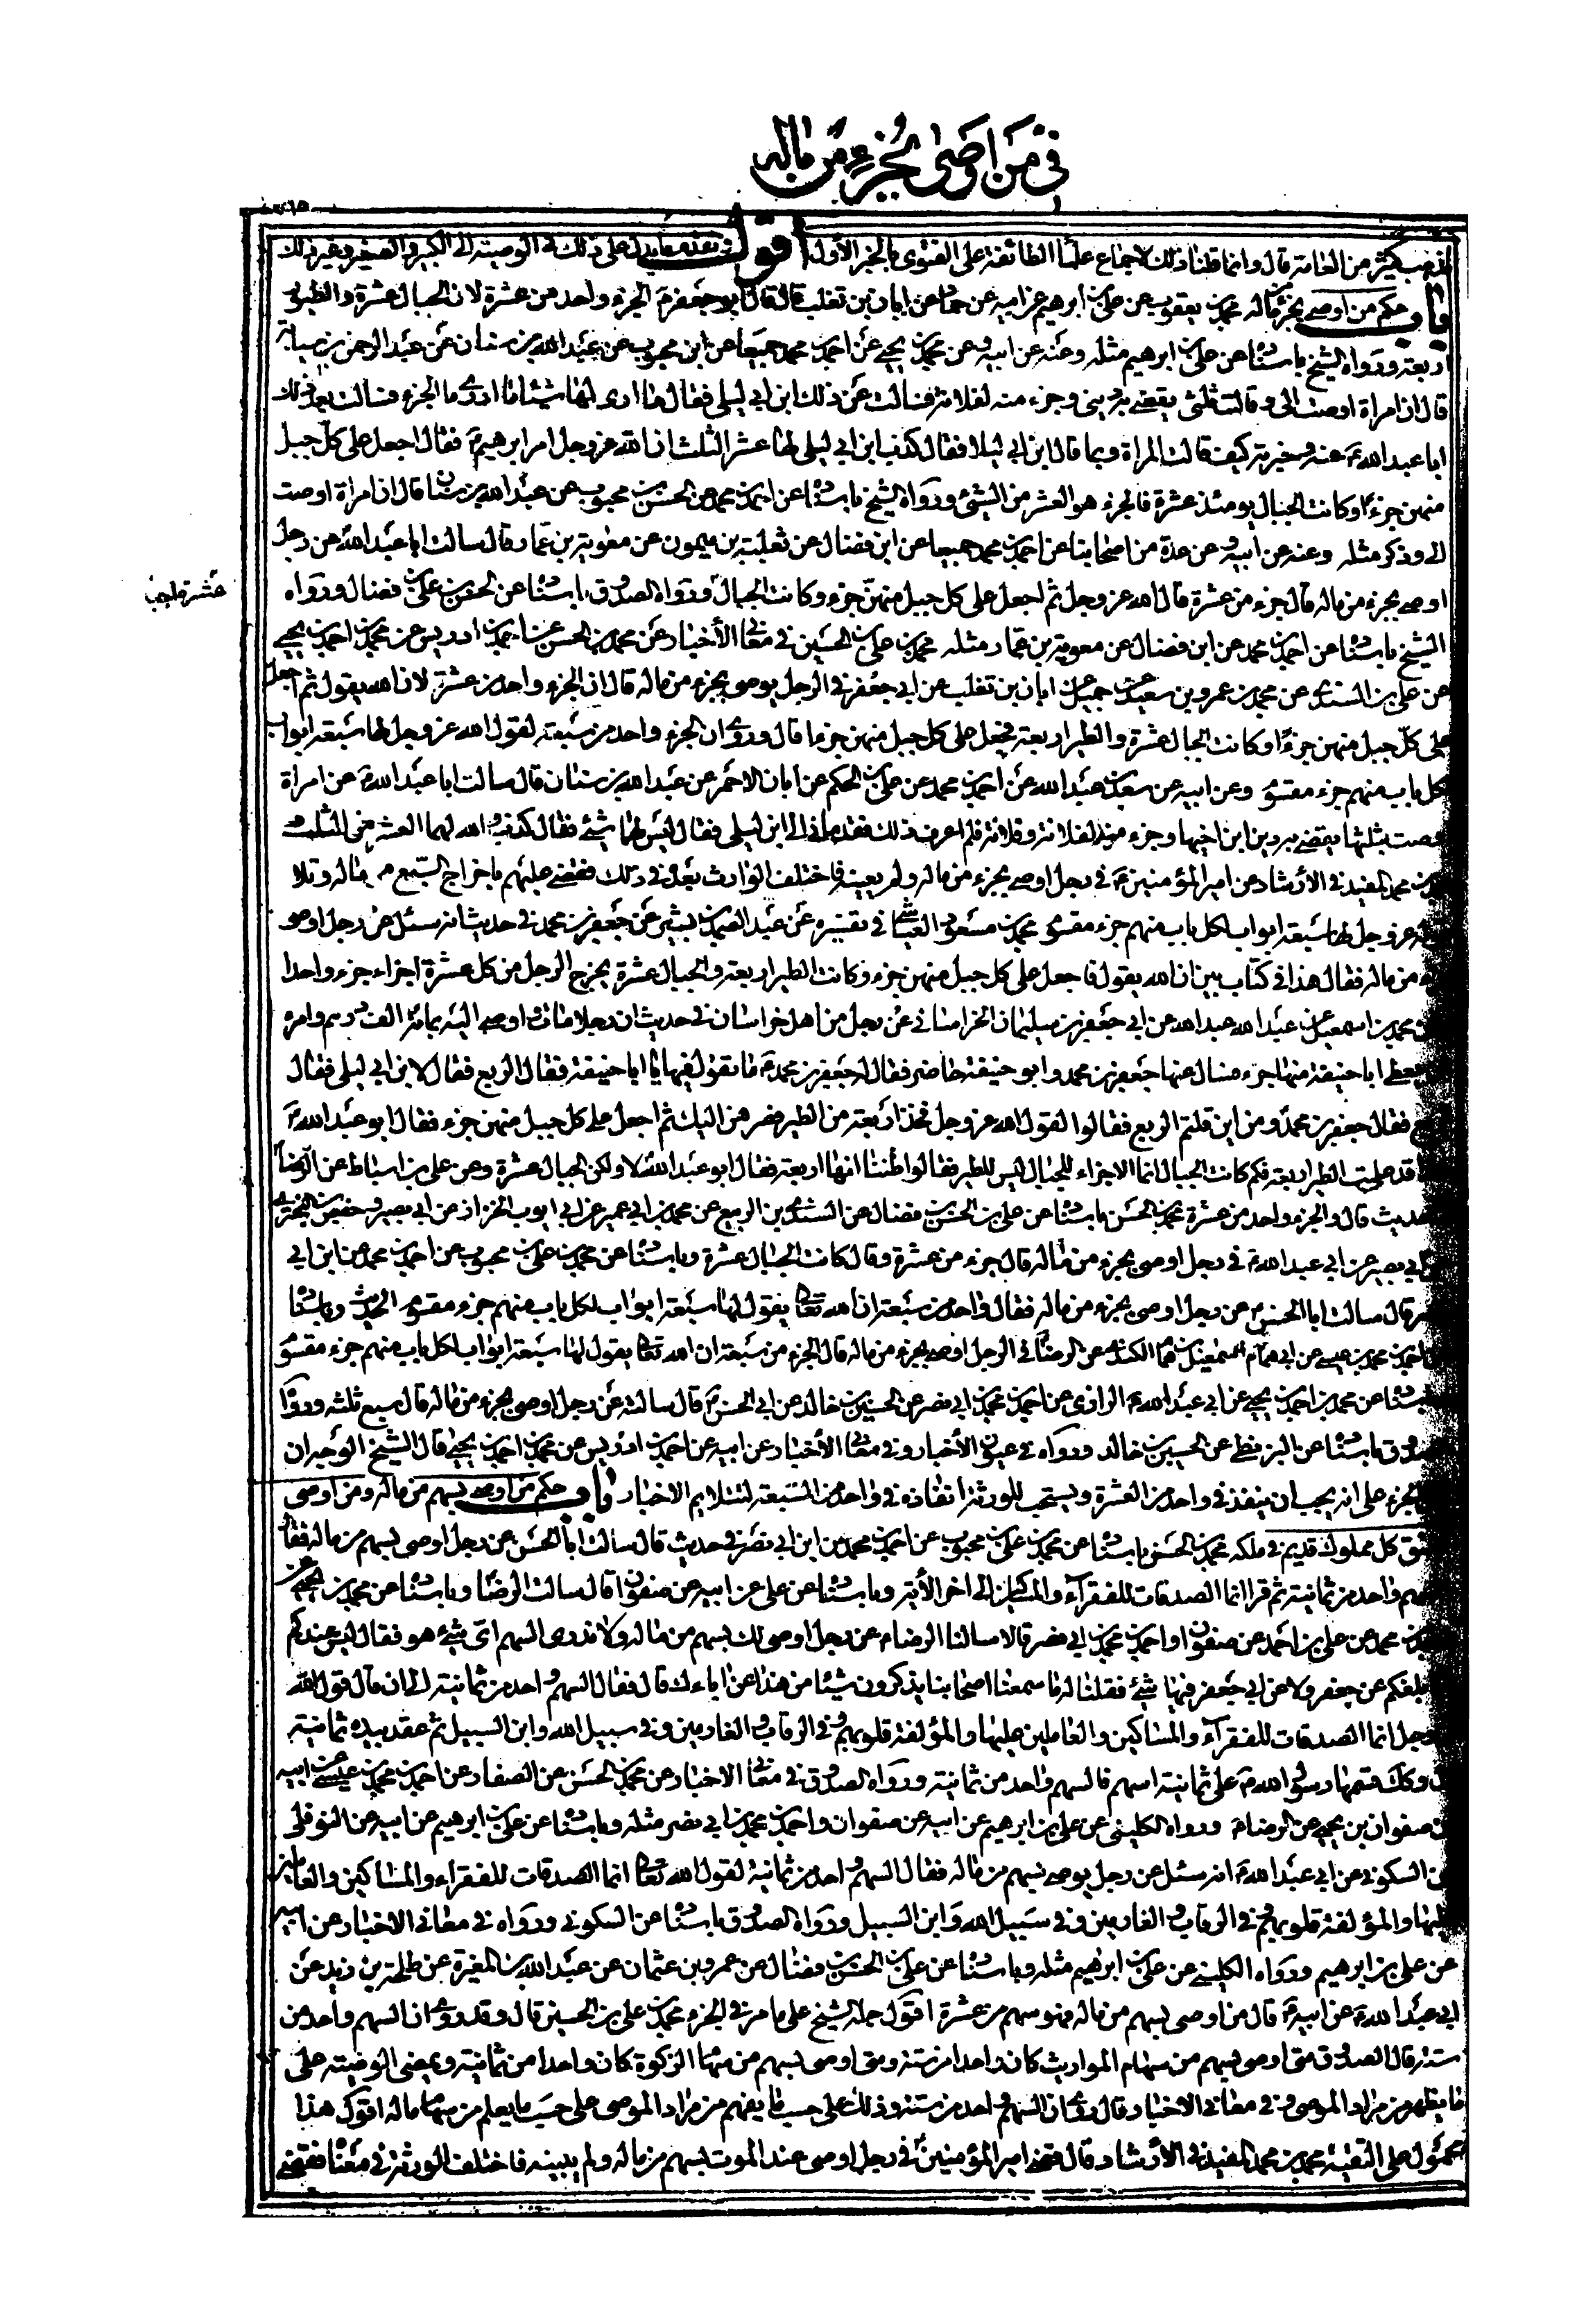 في من اوصى بجزء من ماله
لمذهب كثير من العامة قال وانما قلنا ذلك لاجماع علماء الطائفة على الفتوى بالخبر الأول اقول وتقدم ما يدل على ذلك في الوصية الى الكبير والصغير وغير ذلك
باب حكم من اوصى بجزء من ماله محمد بن يعقوب عن علي بن ابرهيم عن ابيه عن حماد عن ابان بن تغلب قال قال ابو جعفر ع الجزء واحد من عشرة لان الجبال عشرة والطيور
اربعة ورواه الشيخ باسناده عن علي بن ابرهيم مثله وعنه عن ابيه وعن محمد بن يحيى عن احمد بن محمد جميعا عن ابن محبوب عن عبد الله بن سنان عن عبد الرحمن بن سيابة
قال ان امراة اوصت الي وقالت ثلثي يقضى به ديني وجزء منه لفلانة فسالت عن ذلك ابن ابي ليلى فقال ما ارى لها شيئا ما ادري ما الجزء فسالت بعد ذلك
ابا عبد الله ع عنه وخبرته كيف قالت المراة وبما قال ابن ابي ليلى فقال كذب ابن ابي ليلى لها عشر الثلث ان الله عز وجل امر ابرهيم ع فقال اجعل على كل جبل
منهن جزءا وكانت الجبال يومئذ عشرة فالجزء هو العشر من الشيء ورواه الشيخ باسناده عن احمد بن محمد عن الحسن بن محبوب عن عبد الله بن سنان قال ان امراة اوصت
الي وذكر مثله وعنه عن ابيه وعن عدة من اصحابنا عن احمد بن محمد جميعا عن ابن فضال عن ثعلبة بن ميمون عن معوية بن عمار قال سالت ابا عبد الله ع عن رجل
اوصى بجزء من ماله قال جزء من عشرة قال الله عز وجل ثم اجعل على كل جبل منهن جزء وكانت الجبال ورواه الصدوق باسناده عن الحسن بن علي بن فضال ورواه
عشرة اجبل
الشيخ باسناده عن احمد بن محمد عن ابن فضال عن معوية بن عمار مثله محمد بن علي بن الحسين في معاني الأخبار عن محمد بن الحسن عن احمد بن ادريس عن محمد بن احمد بن يحيى
عن علي بن السندي عن محمد بن عمرو بن سعيد عن جميل عن ابان بن تغلب عن ابي جعفر ع في الرجل يوصى بجزء من ماله قال ان الجزء واحد من عشرة لان الله يقول ثم اجعل
على كل جبل منهن جزءا وكانت الجبال عشرة والطير اربعة فجعل على كل جبل منهن جزءا قال وروي ان الجزء واحد من سبعة لقول الله عز وجل لها سبعة ابواب
لكل باب منهم جزء مقسوم وعن ابيه عن سعد بن عبد الله عن احمد بن محمد عن علي بن الحكم عن ابان الاحمر عن عبد الله بن سنان قال سالت ابا عبد الله ع عن امراة
اوصت بثلثها يقضى به دين ابن اخيها وجزء منه لفلانة وفلانة فلم اعرف ذلك فقدما الى ابن ابي ليلى فقال ليس لهما شيء فقال كذب والله لهما العشر من الثلث
محمد بن محمد المفيد في الأرشاد عن امير المؤمنين ع في رجل اوصى بجزء من ماله ولم يعينه فاختلف الوارث بعده في ذلك فقضى عليهم باخراج السبع من ماله وتلا
قوله عز وجل لها سبعة ابواب لكل باب منهم جزء مقسوم محمد بن مسعود العياشي في تفسيره عن عبد الصمد بن بشير عن جعفر بن محمد ع في حديث انه سئل عن رجل اوصى
بجزء من ماله فقال هذا في كتاب بين ان الله يقول فاجعل على كل جبل منهن جزء وكانت الطير اربعة والجبال عشرة يخرج الرجل من كل عشرة اجزاء جزء واحدا
وعن محمد بن اسمعيل عن عبد الله بن عبد الله عن ابي جعفر بن سليمان الخراساني عن رجل من اهل خراسان في حديث ان رجلا مات واوصى اليه بمائة الف درهم وامره
ان يعطى ابا حنيفة منها جزء فسال عنها جعفر بن محمد وابو حنيفة حاضر فقال له جعفر بن محمد ع ما تقول فيها يا ابا حنيفة فقال الربع فقال لابن ابي ليلى فقال
الربع فقال جعفر بن محمد ع ومن اين قلتم الربع فقالوا لقول الله عز وجل فخذ اربعة من الطير فصرهن اليك ثم اجعل على كل جبل منهن جزء فقال ابو عبد الله ع
هذا قد علمت الطير اربعة فكم كانت الجبال انما الاجزاء للجبال ليس للطير فقالوا ظننا انها اربعة فقال ابو عبد الله ع لا ولكن الجبال عشرة وعن علي بن اسباط عن الرضا ع
في حديث قال والجزء واحد من عشرة محمد بن الحسن باسناده عن علي بن الحسن بن فضال عن السندي بن الربيع عن محمد بن ابي عمير عن ابي ايوب الخزاز عن ابي بصير وحفص بن البختري
عن ابي بصير عن ابي عبد الله ع في رجل اوصى بجزء من ماله قال جزء من عشرة وقال كانت الجبال عشرة وباسناده عن محمد بن علي بن محبوب عن احمد بن محمد عن ابن ابي
نصر قال سالت ابا الحسن ع عن رجل اوصى بجزء من ماله فقال واحد من سبعة ان الله تعالى يقول لها سبعة ابواب لكل باب منهم جزء مقسوم الحديث وباسناده
عن احمد بن محمد بن عيسى عن ابي همام اسمعيل بن همام الكندي عن الرضا ع في الرجل اوصى بجزء من ماله قال الجزء من سبعة ان الله تعالى يقول لها سبعة ابواب لكل باب منهم جزء مقسوم
وباسناده عن محمد بن احمد بن يحيى عن ابي عبد الله الرازي عن احمد بن محمد بن ابي نصر عن الحسين بن خالد عن ابي الحسن ع قال سالته عن رجل اوصى بجزء من ماله قال سبع ثلثه ورواه
الصدوق باسناده عن البزنطي عن الحسين بن خالد ورواه في عيون الأخبار وفي معاني الأخبار عن ابيه عن احمد بن ادريس عن محمد بن احمد بن يحيى قال الشيخ الوجه ان
الجزء على انه يجب ان ينفذ في واحد من العشرة ويستحب للورثة انفاذه في واحد من السبعة لتتلايم الاخبار باب حكم من اوصى بسهم من ماله ومن اوصى
بعتق كل مملوك قديم في ملكه محمد بن الحسن باسناده عن محمد بن علي بن محبوب عن احمد بن محمد بن ابي نصر في حديث قال سالت ابا الحسن عن رجل اوصى بسهم من ماله فقال
السهم واحد من ثمانية ثم قرا انما الصدقات للفقرآء والمساكين الى اخر الأية وباسناده عن علي عن ابيه عن صفوان قال سالت الرضا ع وباسناده عن محمد بن يحيى عن
احمد بن محمد عن علي بن احمد عن صفوان او احمد بن محمد بن ابي نصر قالا سالنا الرضا ع عن رجل اوصى لك بسهم من ماله ولا ندري السهم اي شيء هو فقال ليس عندكم
فيما بلغكم عن جعفر ولا عن ابي جعفر فيها شيء فقلنا له ما سمعنا اصحابنا يذكرون شيئا من هذا عن ابائك قال فقال السهم واحد من ثمانية الى ان قال قول الله
عز وجل انما الصدقات للفقرآء والمساكين والعاملين عليها والمؤلفة قلوبهم وفي الرقاب والغارمين وفي سبيل الله وابن السبيل ثم عقد بيده ثمانية
قال وكك قسمها رسول الله ص على ثمانية اسهم فالسهم واحد من ثمانية ورواه الصدوق في معاني الاخبار عن محمد بن الحسن عن الصفار عن احمد بن محمد بن عيسى عن ابيه
عن صفوان بن يحيى عن الرضا ع ورواه الكليني عن علي بن ابرهيم عن ابيه عن صفوان واحمد بن محمد بن ابي نصر مثله وباسناده عن علي بن ابرهيم عن ابيه عن النوفلي
عن السكوني عن ابي عبد الله ع انه سئل عن رجل يوصى بسهم من ماله فقال السهم واحد من ثمانية لقول الله تعالى انما الصدقات للفقراء والمساكين والعاملين
عليها والمؤلفة قلوبهم وفي الرقاب والغارمين وفي سبيل الله وابن السبيل ورواه الصدوق باسناده عن السكوني ورواه في معاني الاخبار عن ابيه
عن علي بن ابرهيم ورواه الكليني عن علي بن ابرهيم مثله وباسناده عن علي بن الحسن بن فضال عن عمرو بن عثمان عن عبد الله بن المغيرة عن طلحة بن زيد عن
ابي عبد الله ع عن ابيه ع قال من اوصى بسهم من ماله فهو سهم من عشرة اقول حمله الشيخ على ما مر في الجزء محمد بن علي بن الحسين قال وقد روي ان السهم واحد من
ستة قال الصدوق متى اوصى بسهم من سهام المواريث كان واحدا من ستة ومتى اوصى بسهم من سهام الزكوة كان واحدا من ثمانية ويمضى الوصية على
ما يظهر من مراد الموصى وفي معاني الاخبار قال روي ان السهم واحد من ستة وذلك على حسب ما يفهم من مراد الموصى على حسب ما يعلم من سهام ماله اقول هذا
محمول على التقية محمد بن محمد المفيد في الأرشاد قال قضى امير المؤمنين ع في رجل اوصى عند الموت بسهم من ماله ولم يبينه فاختلف الورثة في معناه فقضى